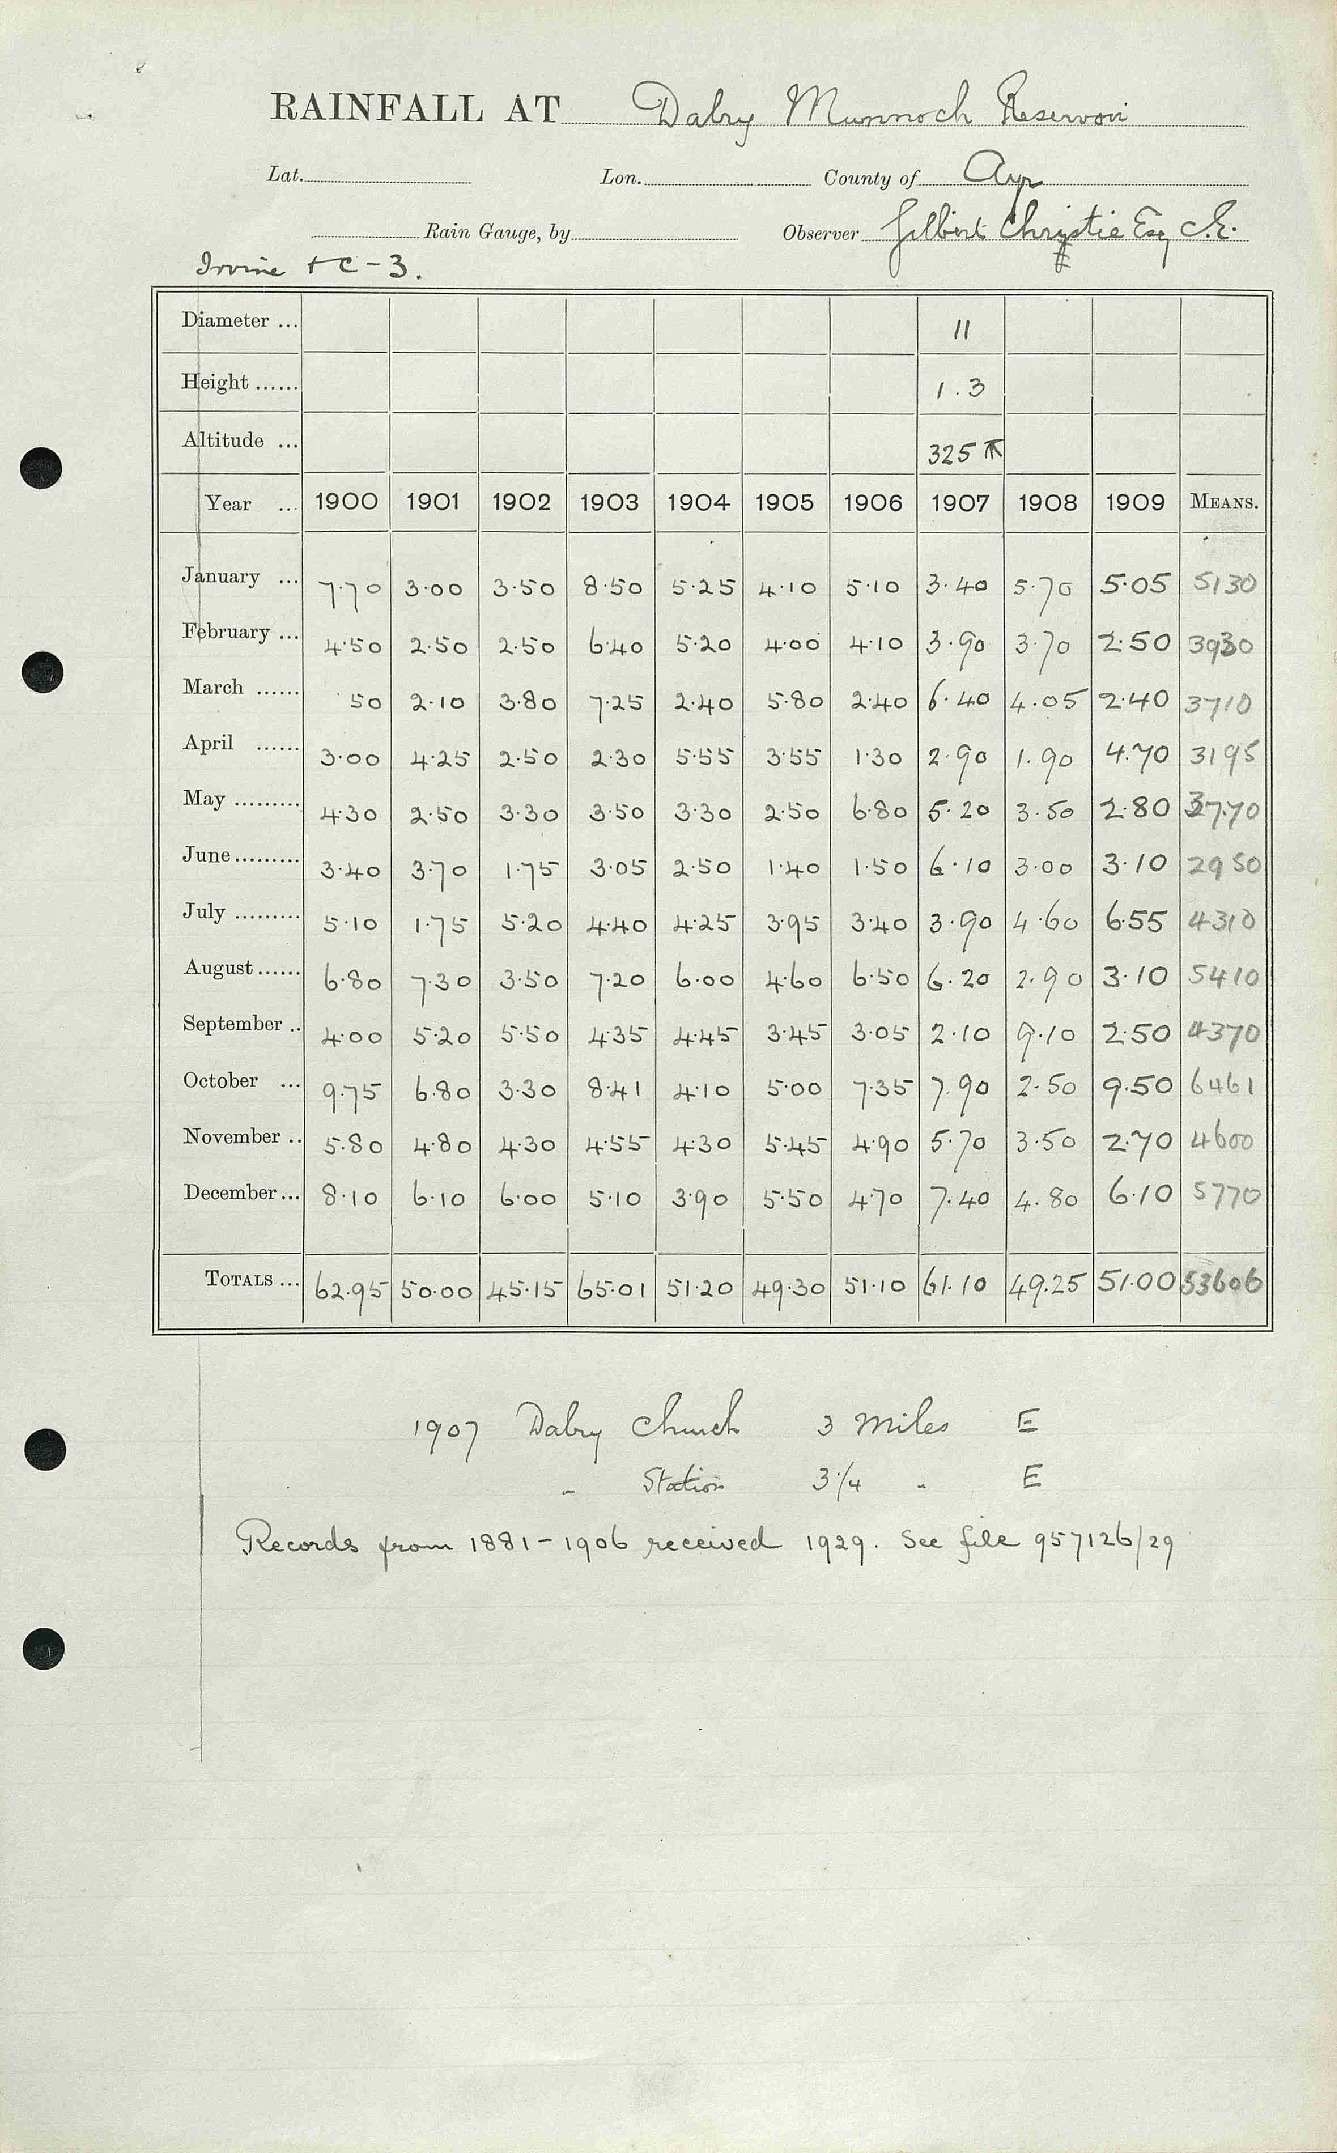 RAINFALL AT Dalry Munnoch Reservoir
Lat. Lon. County of Ayr
Rain Gauge, by Observer Gilbert Christie Esq C.E.
Irvine + C - 3.
Diameter ... 11
Height ...... 1.3
Altitude ... 325
Year ... 1900 1901 1902 1903 1904 1905 1906 1907 1908 1909 MEANS.
January ... 7.70 3.00 3.50 8.50 5.25 4.10 5.10 3.40 5.70 5.05 5130
February ... 4.50 2.50 2.50 6.40 5.20 4.00 4.10 3.90 3.70 2.50 3930
March ...... 50 2.10 3.80 7.25 2.40 5.80 2.40 6.40 4.05 2.40 3710
April ...... 3.00 4.25 2.50 2.30 5.55 3.55 1.30 2.90 1.90 4.70 3195
May ......... 4.30 2.50 3.30 3.50 3.30 2.50 6.80 5.20 3.50 2.80 3770
June ......... 3.40 3.70 1.75 3.05 2.50 1.40 1.50 6.10 3.00 3.10 2950
July ......... 5.10 1.75 5.20 4.40 4.25 3.95 3.40 3.90 4.60 6.55 4310
August ...... 6.80 7.30 3.50 7.20 6.00 4.60 6.50 6.20 2.90 3.10 5410
September .. 4.00 5.20 5.50 4.35 4.45 3.45 3.05 2.10 9.10 2.50 4370
October ... 9.75 6.80 3.30 8.41 4.10 5.00 7.35 7.90 2.50 9.50 6461
November .. 5.80 4.80 4.30 4.55 4.30 5.45 4.90 5.70 3.50 2.70 4600
December ... 8.10 6.10 6.00 5.10 3.90 5.50 4.70 7.40 4.80 6.10 5770
TOTALS ... 62.95 50.00 45.15 65.01 51.20 49.30 51.10 61.10 49.25 51.00 53606
1907 Dalry Church 3 Miles E
" Station 3 1/4 " E
Records from 1881 - 1906 received 1929. See file 957126/29